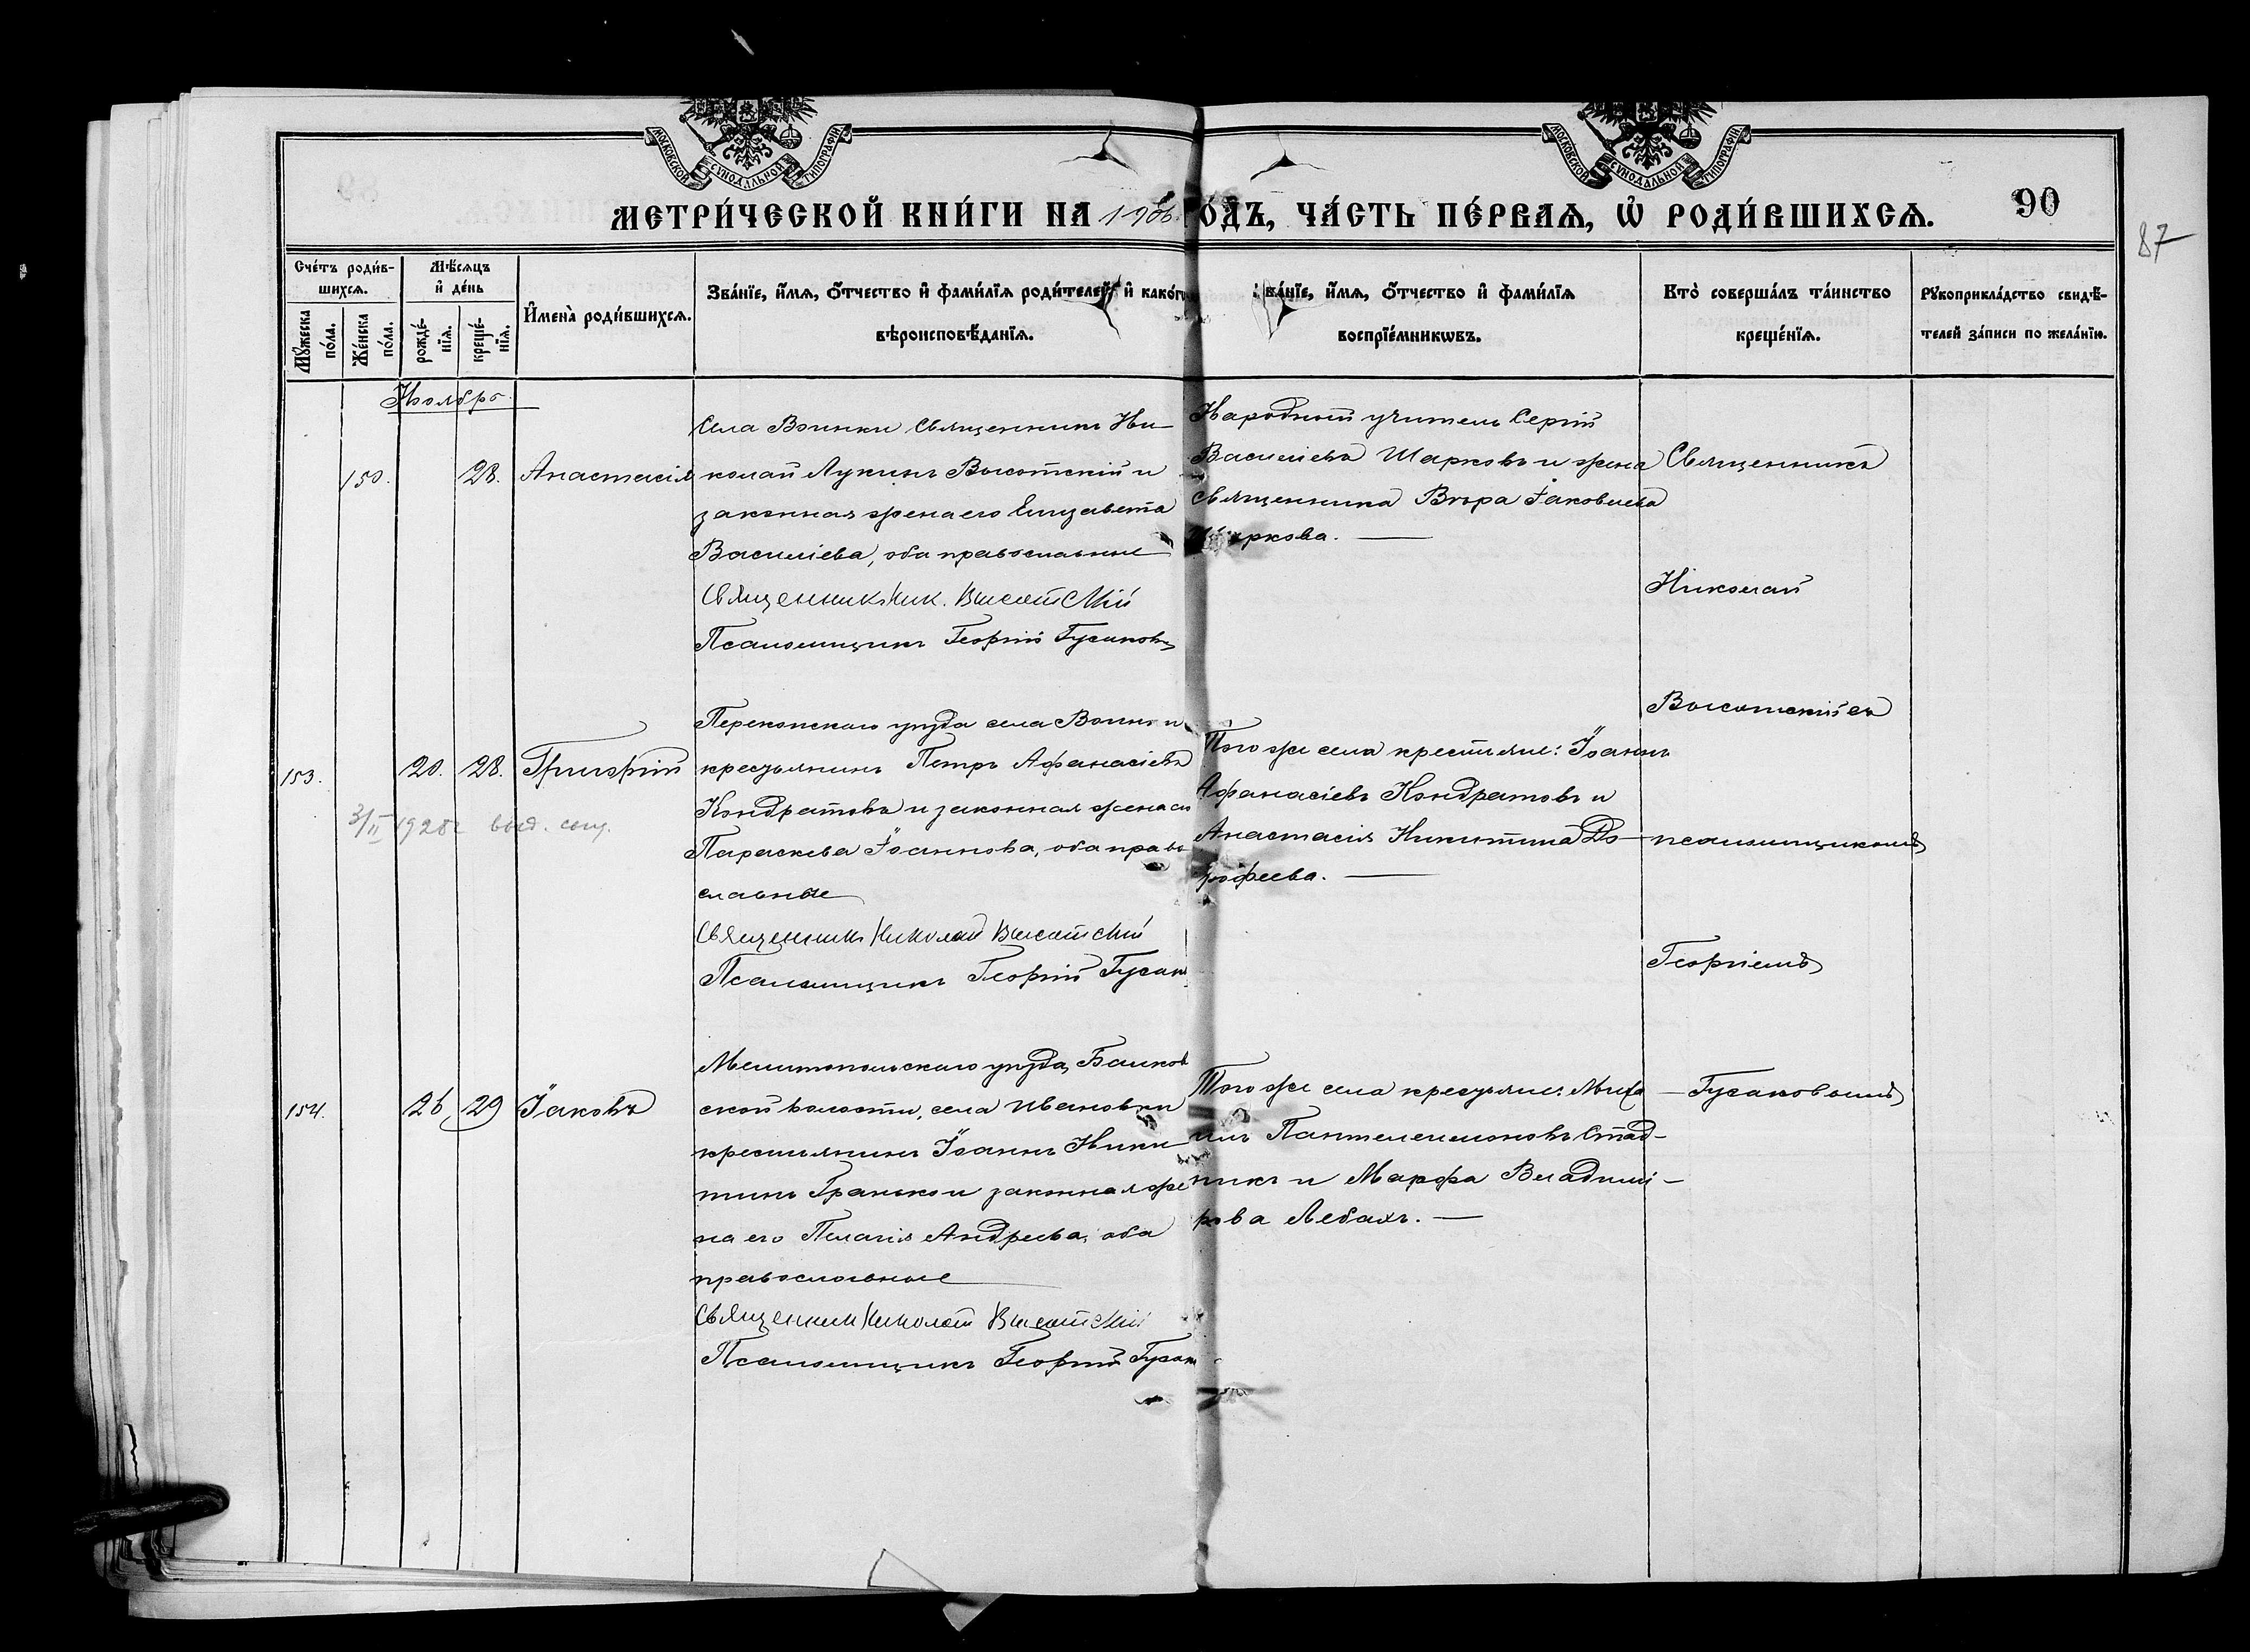 МОСКОВСКОЙ СѴНОДАЛЬНОЙ ТИПОГРАФІИ
МОСКОВСКОЙ СѴНОДАЛЬНОЙ ТИПОГРАФІИ
МЕТРИ́ЧЕСКОЙ КНИ́ГИ НА 1906 ГОДЪ, ЧА́СТЬ ПЕ́РВАѦ, Ѡ҆ РОДИ́ВШИХСѦ.
90
87
Сче́тъ роди́в-
шихсѧ.
Мѣ́сѧцъ
и҆ де́нь
Мꙋ́жеска по́ла.
Же́нска по́ла.
рожде́-нїѧ.
креще́-нїѧ.
И҆мена̀ роди́вшихсѧ.
Зва́нїе, и҆́мѧ, ѻ҆́тчество и҆ фами́лїѧ роди́телей, и҆ како́гѡ
вѣроисповѣ́данїѧ.
Зва́нїе, и҆́мѧ, ѻ҆́тчество и҆ фами́лїѧ
воспрїе́мникѡвъ.
Кто̀ соверша́лъ та́инство
креще́нїѧ.
Рꙋкоприкла́дство свидѣ́-
телей за́писи по жела́нїю.
Ноябрь
150.
28.
Анастасія
Села Воинки Священникъ Ни-
колай Лукинъ Высотскій и
законная жена его Елизавета
Василіева, оба православные
Священникъ Ник. Высотскій
Псаломщикъ Георгій Гусаковъ
Народный учитель Сергій
Василіевъ Шарковъ и жена
священника Вѣра Іаковлева
Шаркова.
Священникъ
Николай
Высотскій съ
псаломщикомъ
Георгіемъ
Гусаковымъ
153.
20.
28.
Григорій
3/II 1928 г. выд.
Перекопскаго уѣзда села Воинки
крестьянинъ Петръ Афанасіевъ
Кондратовъ и законная жена его
Параскева Іоаннова, оба право
славные
Священникъ Николай Высотскій
Псаломщикъ Георгій Гусак
Того же села крестьяне: Іоаннъ
Афанасіевъ Кондратовъ и
Анастасія Никитина До-
рофеева.
154.
26
29
Іаковъ
Мелитопольскаго уѣзда, Балков
ской волости, села Ивановки
крестьянинъ Іоаннъ Ники
тинъ Гранько и законная же
на его Пелагія Андреева, оба
православные
Священникъ Николай Высотскій
Псаломщикъ Георгій Гусак
Того же села крестьяне: Миха
илъ Пантелеимоновъ Стад-
никъ и Марфа Владими-
рова Лебахъ.